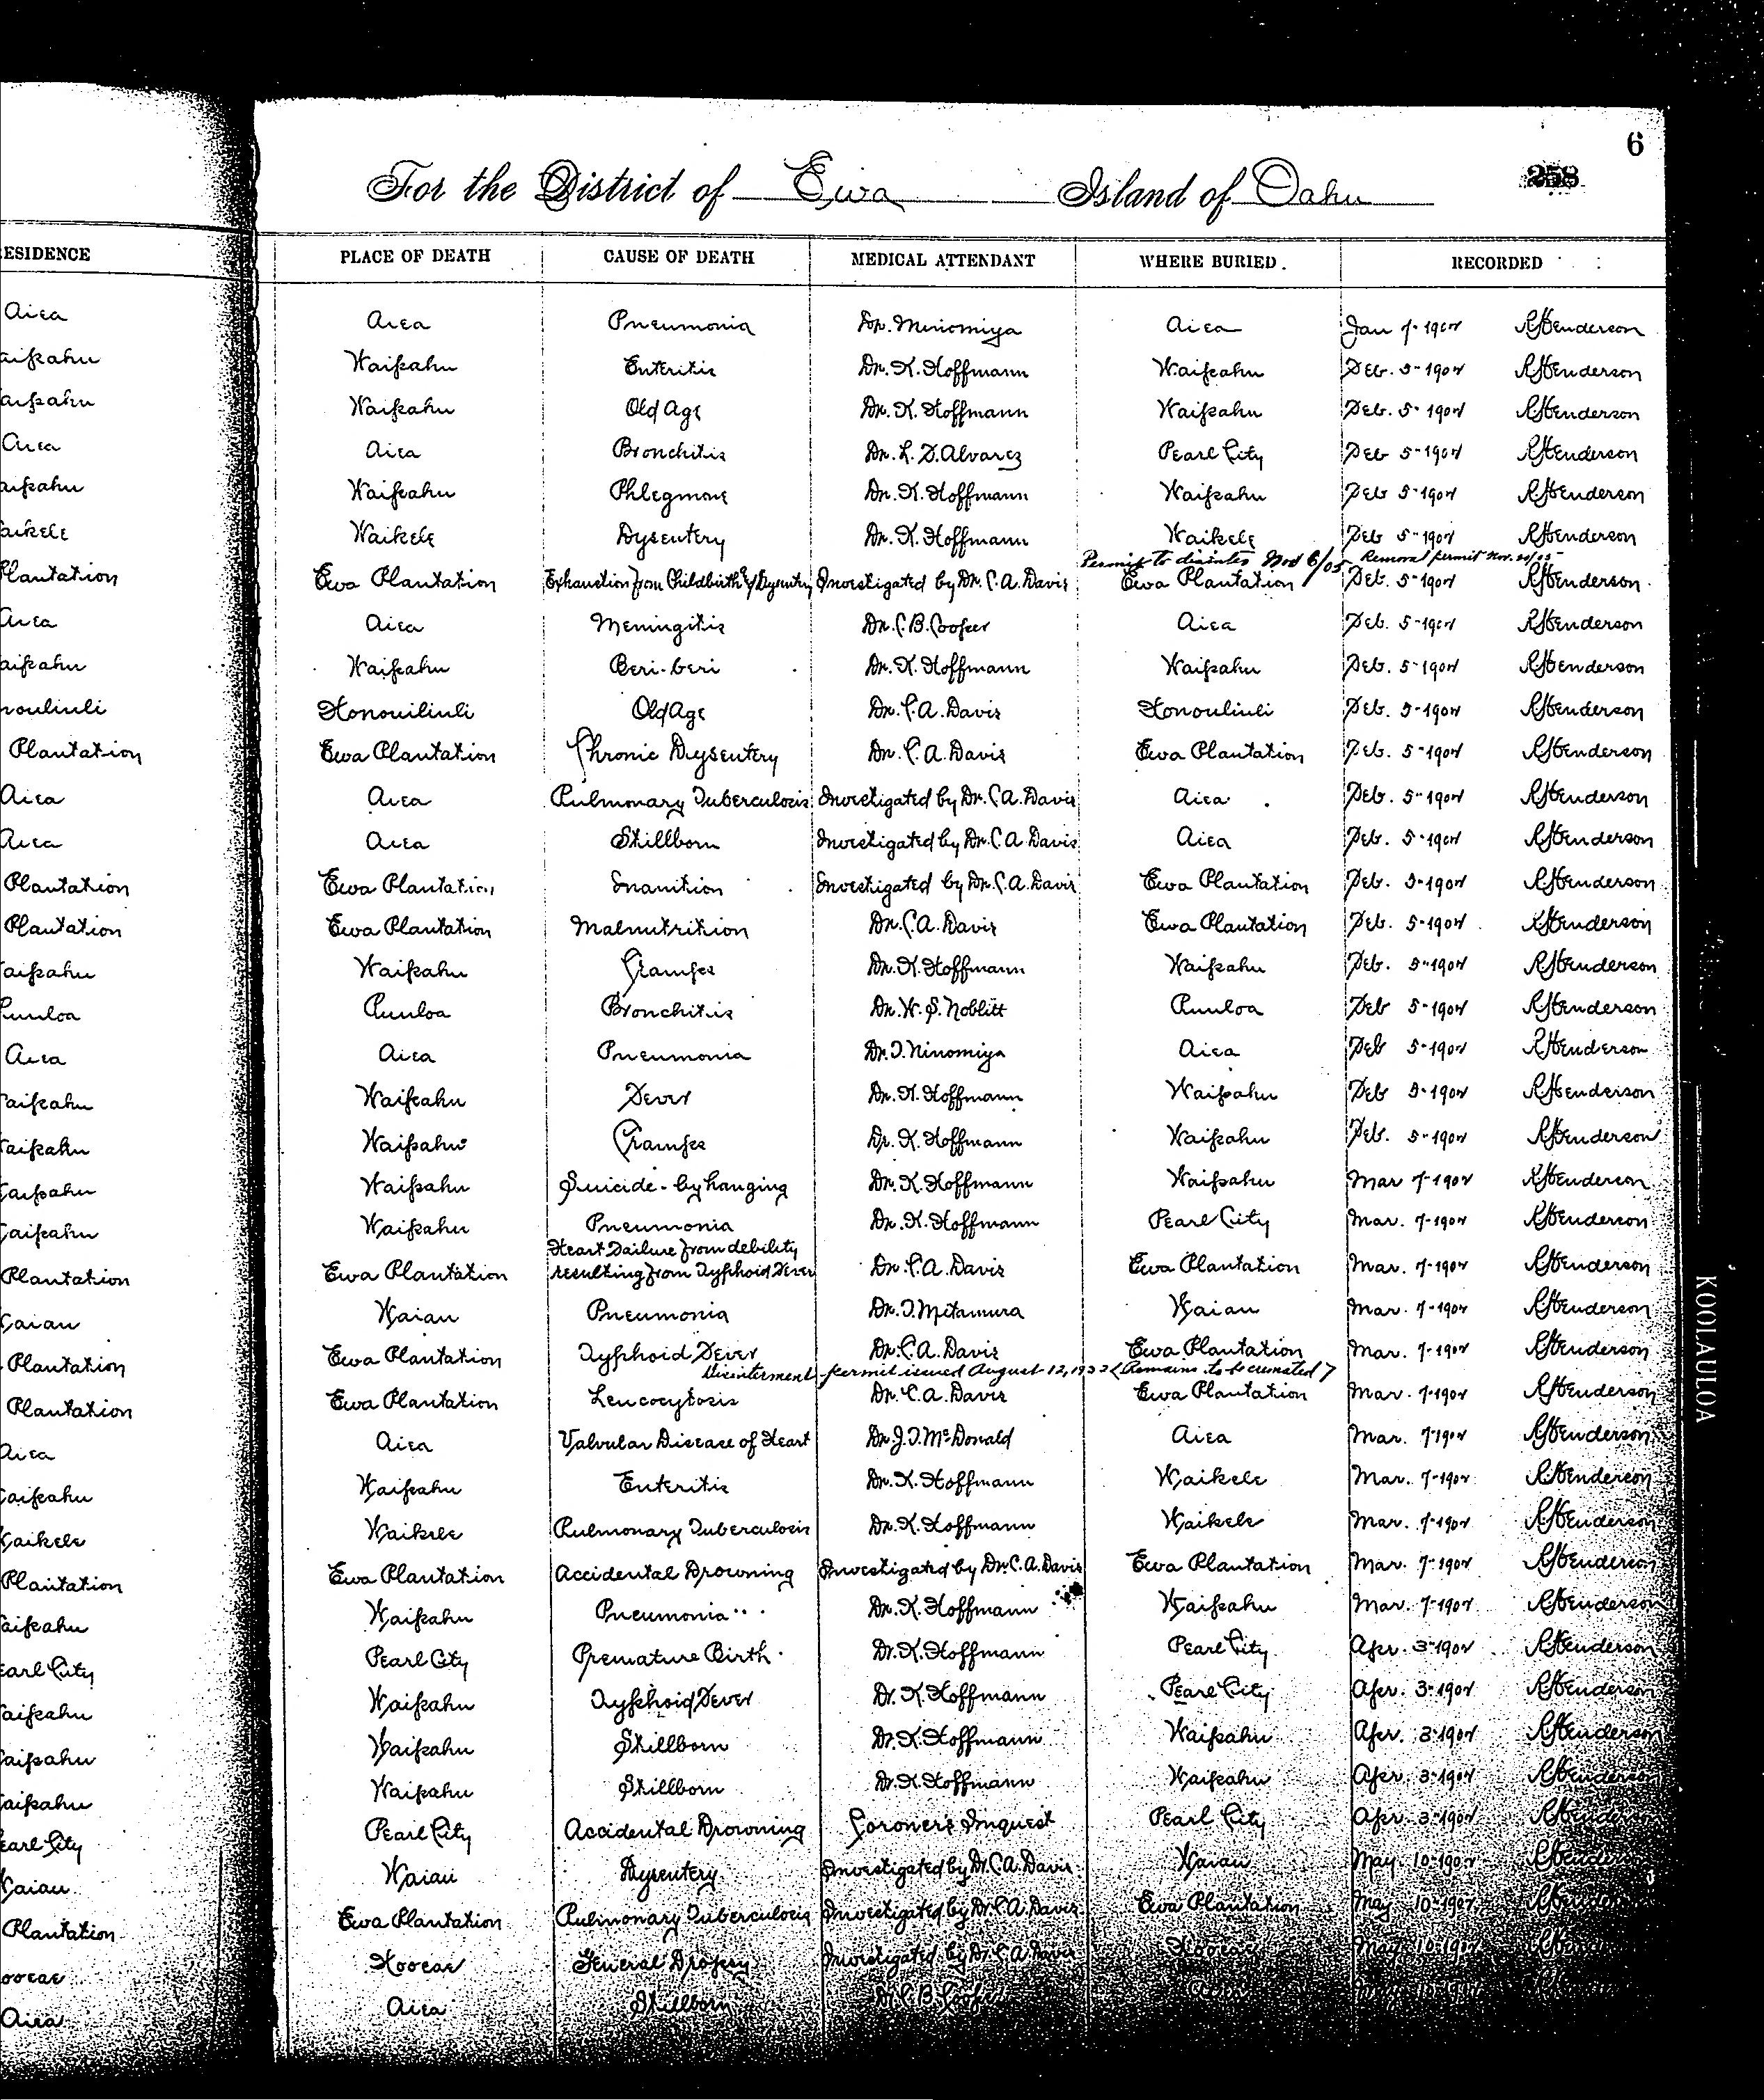 6
258
For the District of Ewa Island of Oahu
ESIDENCE PLACE OF DEATH CAUSE OF DEATH MEDICAL ATTENDANT WHERE BURIED. RECORDED
Aiea Aiea Pneumonia Dr. Aiea Jan 7-1904 RHenderson
aipahu Waipahu Enteritis Dr. K. Hoffmann Waipahu Feb. 5-1904 RHenderson
aipahu Waipahu Old Age Dr. K. Hoffmann Waipahu Feb. 5-1904 RHenderson
Aiea Aiea Bronchitis Dr. L. F. Alvarez Pearl City Feb 5-1904 RHenderson
aipahu Waipahu Phlegmone Dr. K. Hoffmann Waipahu Feb 5-1904 RHenderson
aikele Waikele Dysentery Dr. K. Hoffmann Waikele Feb 5-1904 RHenderson
Permit to disinter Nov 6/05 Removal permit Nov. 20/05
Plantation Ewa Plantation Exhaustion from Childbirth & Dysentry Investigated by Dr. C. A. Davis Ewa Plantation Feb. 5-1904 RHenderson
Aiea Aiea Meningitis Dr. C. B. Cooper Aiea Feb. 5-1904 RHenderson
aipahu Waipahu Beri-beri Dr. K. Hoffmann Waipahu Feb. 5-1904 RHenderson
nouliuli Honouiliuli Old Age Dr. C. A. Davis Honouliuli Feb. 5-1904 RHenderson
Plantation Ewa Plantation Chronic Dysentery Dr. C. A. Davis Ewa Plantation Feb. 5-1904 RHenderson
Aiea Aiea Pulmonary Tuberculosis Investigated by Dr. C. A. Davis Aiea Feb. 5-1904 RHenderson
Aiea Aiea Stillborn Investigated by Dr. C. A. Davis Aiea Feb. 5-1904 RHenderson
Plantation Ewa Plantation Inanition Investigated by Dr. C. A. Davis Ewa Plantation Feb. 5-1904 RHenderson
Plantation Ewa Plantation Malnutrition Dr. C. A. Davis Ewa Plantation Feb. 5-1904 RHenderson
aipahu Waipahu Cramps Dr. K. Hoffmann Waipahu Feb. 5-1904 RHenderson
Puuloa Puuloa Bronchitis Dr. W. S. Noblitt Puuloa Feb 5-1904 RHenderson
Aiea Aiea Pneumonia Dr. T. Ninomiya Aiea Feb 5-1904 RHenderson
aipahu Waipahu Fever Dr. K. Hoffmann Waipahu Feb 5-1904 RHenderson
aipahu Waipahu Cramps Dr. K. Hoffmann Waipahu Feb. 5-1904 RHenderson
aipahu Waipahu Suicide - by hanging Dr. K. Hoffmann Waipahu Mar 7-1904 RHenderson
aipahu Waipahu Pneumonia Dr. K. Hoffmann Pearl City Mar. 7-1904 RHenderson
Heart Failure from debility
Plantation Ewa Plantation resulting from Typhoid Fever Dr. C. A. Davis Ewa Plantation Mar. 7-1904 RHenderson
Waiau Waiau Pneumonia Dr. T. Mitamura Waiau Mar. 7-1904 RHenderson
Plantation Ewa Plantation Typhoid Fever Dr. C. A. Davis Ewa Plantation Mar. 7-1904 RHenderson
Disinterment permit issued August 12, (Remains to be cremated)
Plantation Ewa Plantation Leucocytosis Dr. C. A. Davis Ewa Plantation Mar. 7-1904 RHenderson
Aiea Aiea Valvular Disease of Heart Dr. J. T. McDonald Aiea Mar. 7-1904 RHenderson
aipahu Waipahu Enteritis Dr. K. Hoffmann Waikele Mar. 7-1904 RHenderson
Waikele Waikele Pulmonary Tuberculosis Dr. K. Hoffmann Waikele Mar. 7-1904 RHenderson
Plantation Ewa Plantation Accidental Drowning Investigated by Dr. C. A. Davis Ewa Plantation Mar. 7-1904 RHenderson
aipahu Waipahu Pneumonia Dr. K. Hoffmann Waipahu Mar. 7-1904 RHenderson
earl City Pearl City Premature Birth Dr. K. Hoffmann Pearl City Apr. 3-1904 RHenderson
aipahu Waipahu Typhoid Fever Dr. K. Hoffmann Pearl City Apr. 3-1904 RHenderson
aipahu Waipahu Stillborn Dr. K. Hoffmann Waipahu Apr. 3-1904 RHenderson
aipahu Waipahu Stillborn Dr. K. Hoffmann Waipahu Apr. 3-1904 RHenderson
earl City Pearl City Accidental Drowning Coroner's Inquest Pearl City Apr. 3-1904 RHenderson
Waiau Waiau Dysentery Investigated by Dr. C. A. Davis Waiau May 10-1904 RHenderson
Plantation Ewa Plantation Pulmonary Tuberculosis Investigated by Dr. C. A. Davis Ewa Plantation May 10-1904
ooeae Hooeae General Dropsy Investigated by Dr. C. A. Davis Hooeae May 10-1904
Aiea Aiea Stillborn Dr. C. B. Cooper
KOOLAULOA